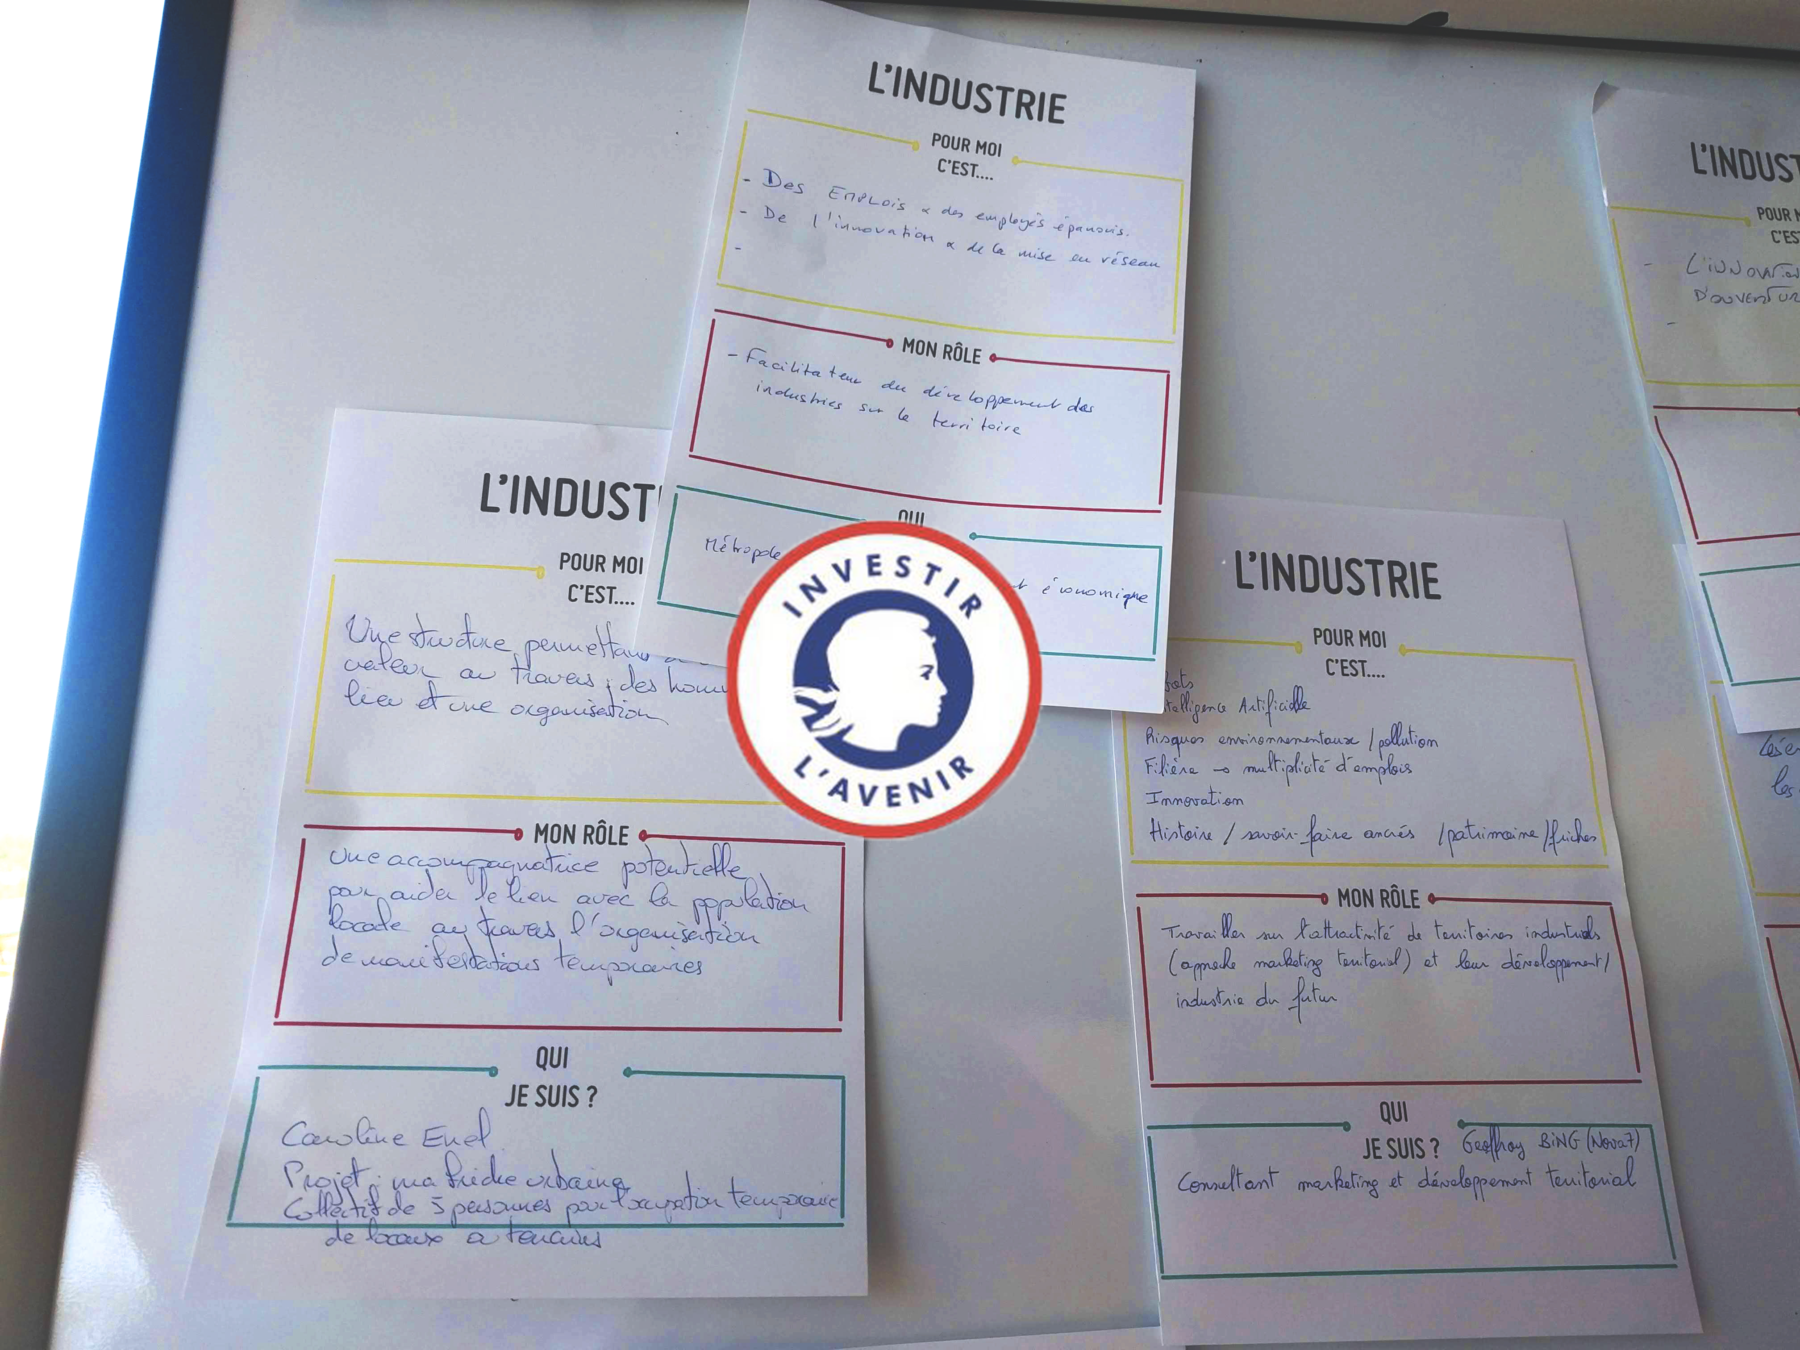 L'INDUSTRIE
POUR MOI
C'EST....
- Des EMPLOIS & des employés épanouis.
- De l'innovation & de la mise en réseau
-
MON RÔLE
- Facilitateur du développement des
industries sur le territoire
QUI
Métropole
économique
INVESTIR
L'AVENIR
L'INDUST
POUR MOI
C'EST....
Une structure permettant
valeur au travers, des
lieu et une organisation
MON RÔLE
Une accompagnatrice potentielle
pour aider le lien avec la population
locale au travers l'organisation
de manifestations temporaires
QUI
JE SUIS ?
Caroline Enel
Projet : ma friche urbaine
Collectif de 5 personnes pour l'occupation temporaire
de locaux a
L'INDUSTRIE
POUR MOI
C'EST....
Artificielle
Risques environnementaux / pollution
Filière → multiplicité d'emplois
Innovation
Histoire / savoir-faire ancrés / patrimoine / friches
MON RÔLE
Travailler sur l'attractivité de territoires industriels
(approche marketing territorial) et leur développement /
industrie du futur
QUI
JE SUIS ? Geoffroy BiNG (Nova7)
Consultant marketing et développement territorial
L'INDUST
POUR M
C'EST
- L'iNNOVATion
D'OUVERTUR
-
les